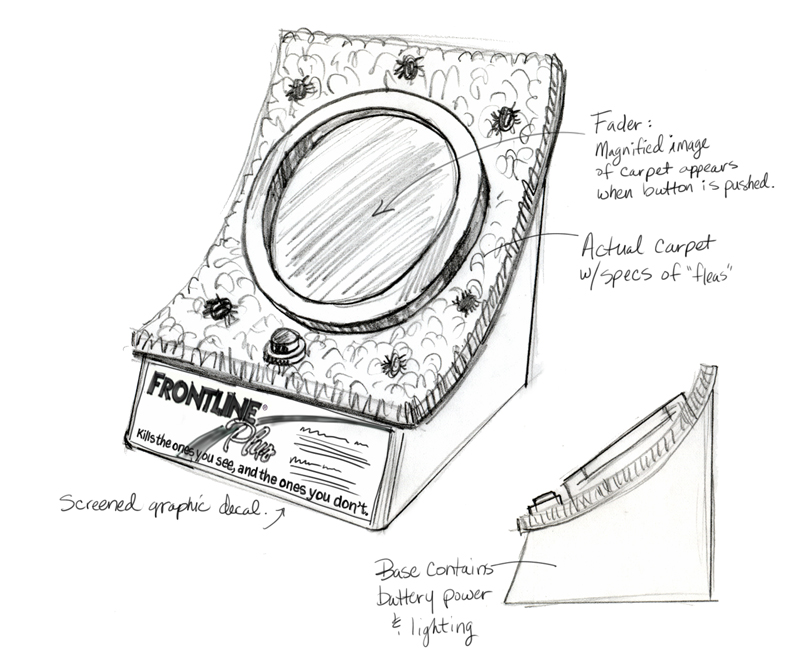 Fader:
Magnified image
of carpet appears
when button is pushed.
Actual carpet
w/specs of "fleas"
FRONTLINE®
Plus
Kills the ones you see, and the ones you don't.
Screened graphic decal.
Base contains
battery power
& lighting